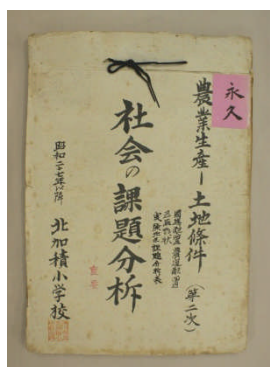 永久
農業生産ー土地條件(第二次)
社会の課題分析
昭和二十七年以降
北加積小学校
重要